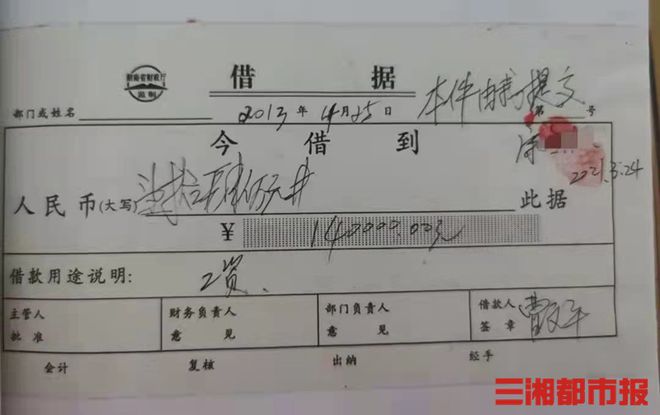 湖南省财政厅
监制
借 据
本件由我提交
部门或姓名
2013 年 4 月 25 日
第 号
今 借 到
2021.3.24
人民币(大写)
此据
¥ 140000.00元
借款用途说明: 工资、
主管人 批准
财务负责人 意见
部门负责人 意见
借款人 签章
会计 复核 出纳 经手
三湘都市报